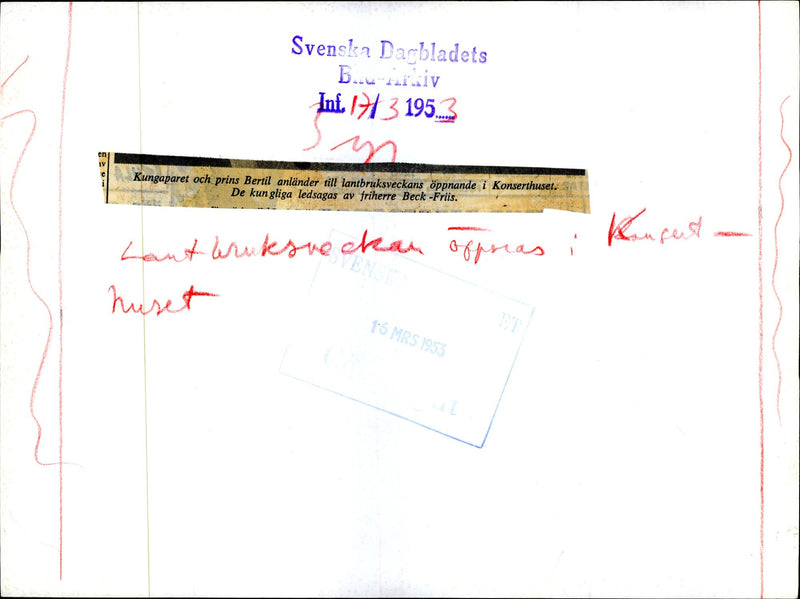 Svenska Dagbladets
Bild-Arkiv
Inf. 17/3 1953
Kungaparet och prins Bertil anländer till lantbruksveckans öppnande i Konserthuset.
De kungliga ledsagas av friherre Beck-Friis.
Lantbruksveckan öppnas i Konsert-
huset
SVENSK
ET
16 MRS 1953